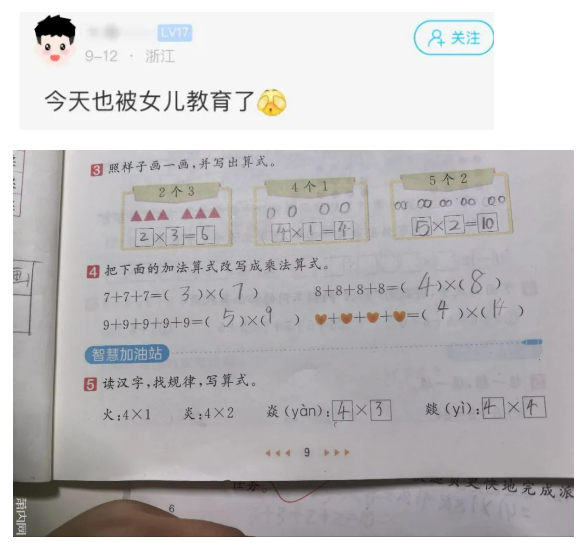 LV17
9-12 · 浙江
关注
今天也被女儿教育了
3 照样子画一画,并写出算式。
2个3 4个1 5个2
2×3=6 4×1=4 5×2=10
4 把下面的加法算式改写成乘法算式。
7+7+7=( 3 )×( 7 ) 8+8+8+8=( 4 )×( 8 )
9+9+9+9+9=( 5 )×( 9 ) ❤+❤+❤+❤=( 4 )×( )
智慧加油站
5 读汉字,找规律,写算式。
火:4×1 炎:4×2 焱(yàn):4×3 燚(yì):4×4
9
6
地完成派